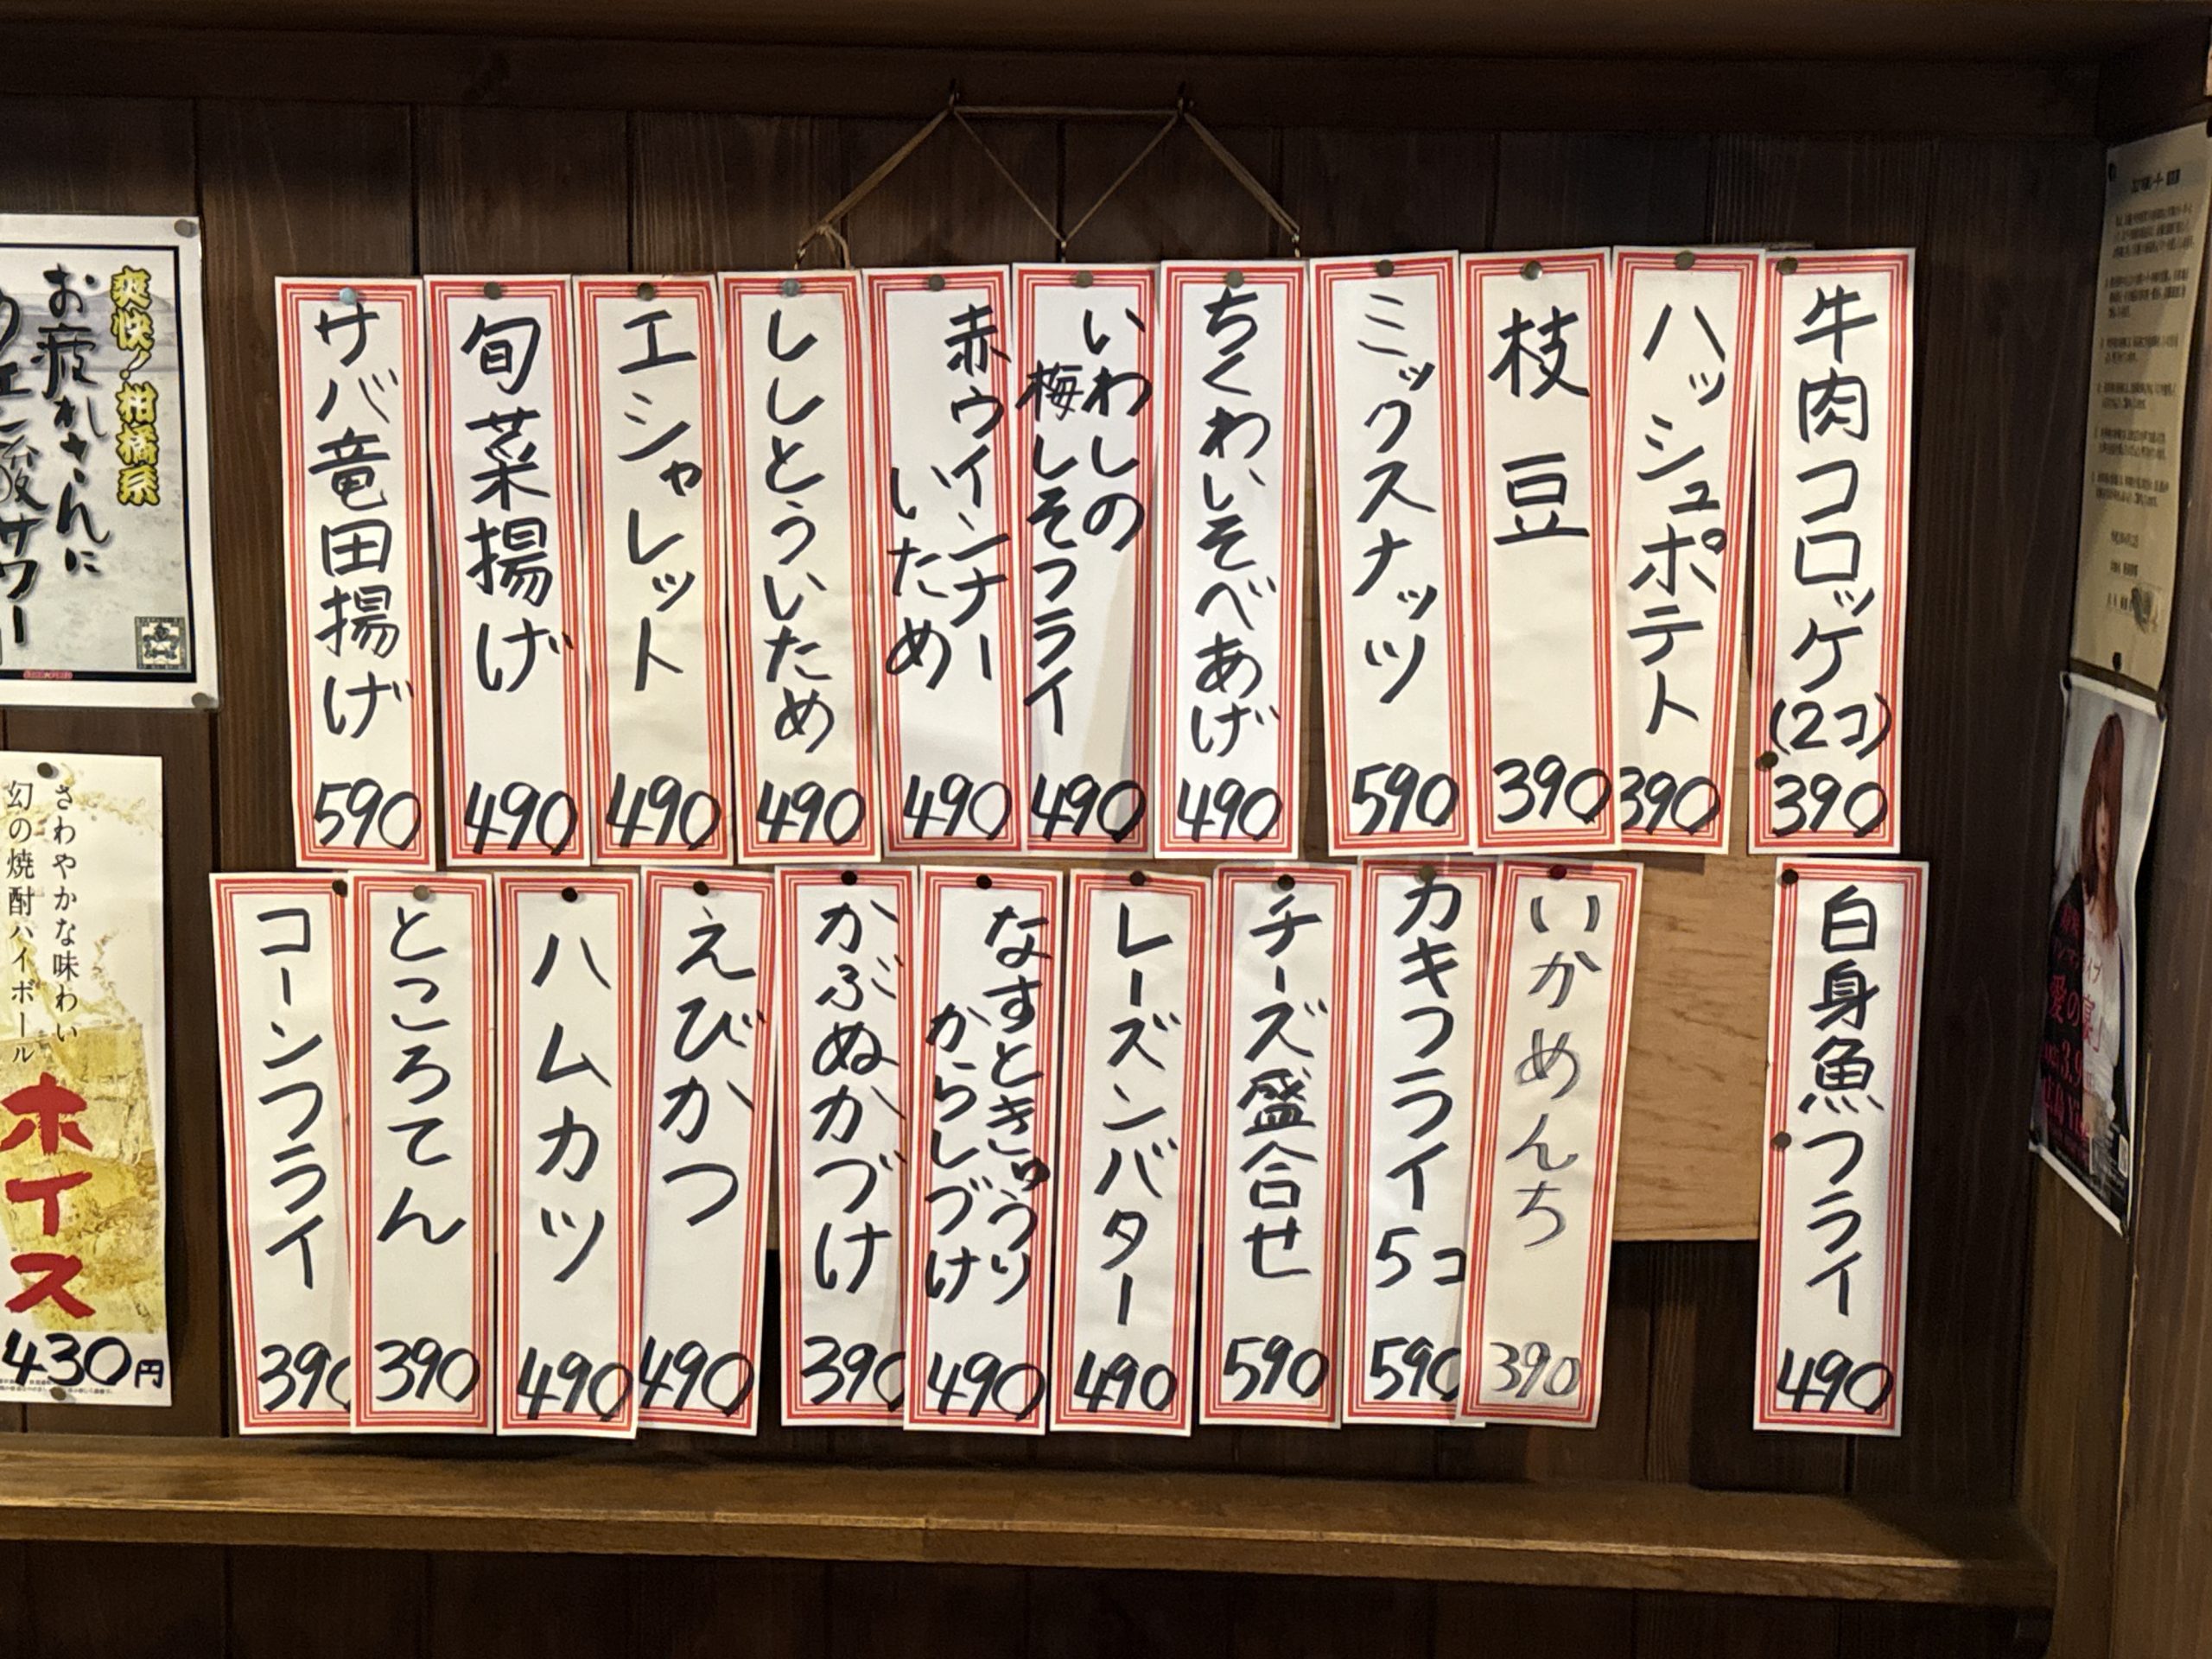 牛肉コロッケ
(2コ)
390
ハッシュポテト
390
枝豆
390
ミックスナッツ
590
ちくわいそべあげ
490
いわしの
梅しそフライ
490
赤ウインナー
いため
490
ししとういため
490
エシャレット
490
旬菜揚げ
490
サバ竜田揚げ
590
白身魚フライ
490
いかめんち
390
カキフライ
5コ
590
チーズ盛合せ
590
レーズンバター
490
なすときゅうり
からしづけ
490
かぶぬかづけ
390
えびかつ
490
ハムカツ
490
ところてん
390
コーンフライ
390
爽快!柑橘系
お疲れさんに
クエン酸サワー
さわやかな味わい
幻の焼酎ハイボール
ホイス
430円
愛の宴